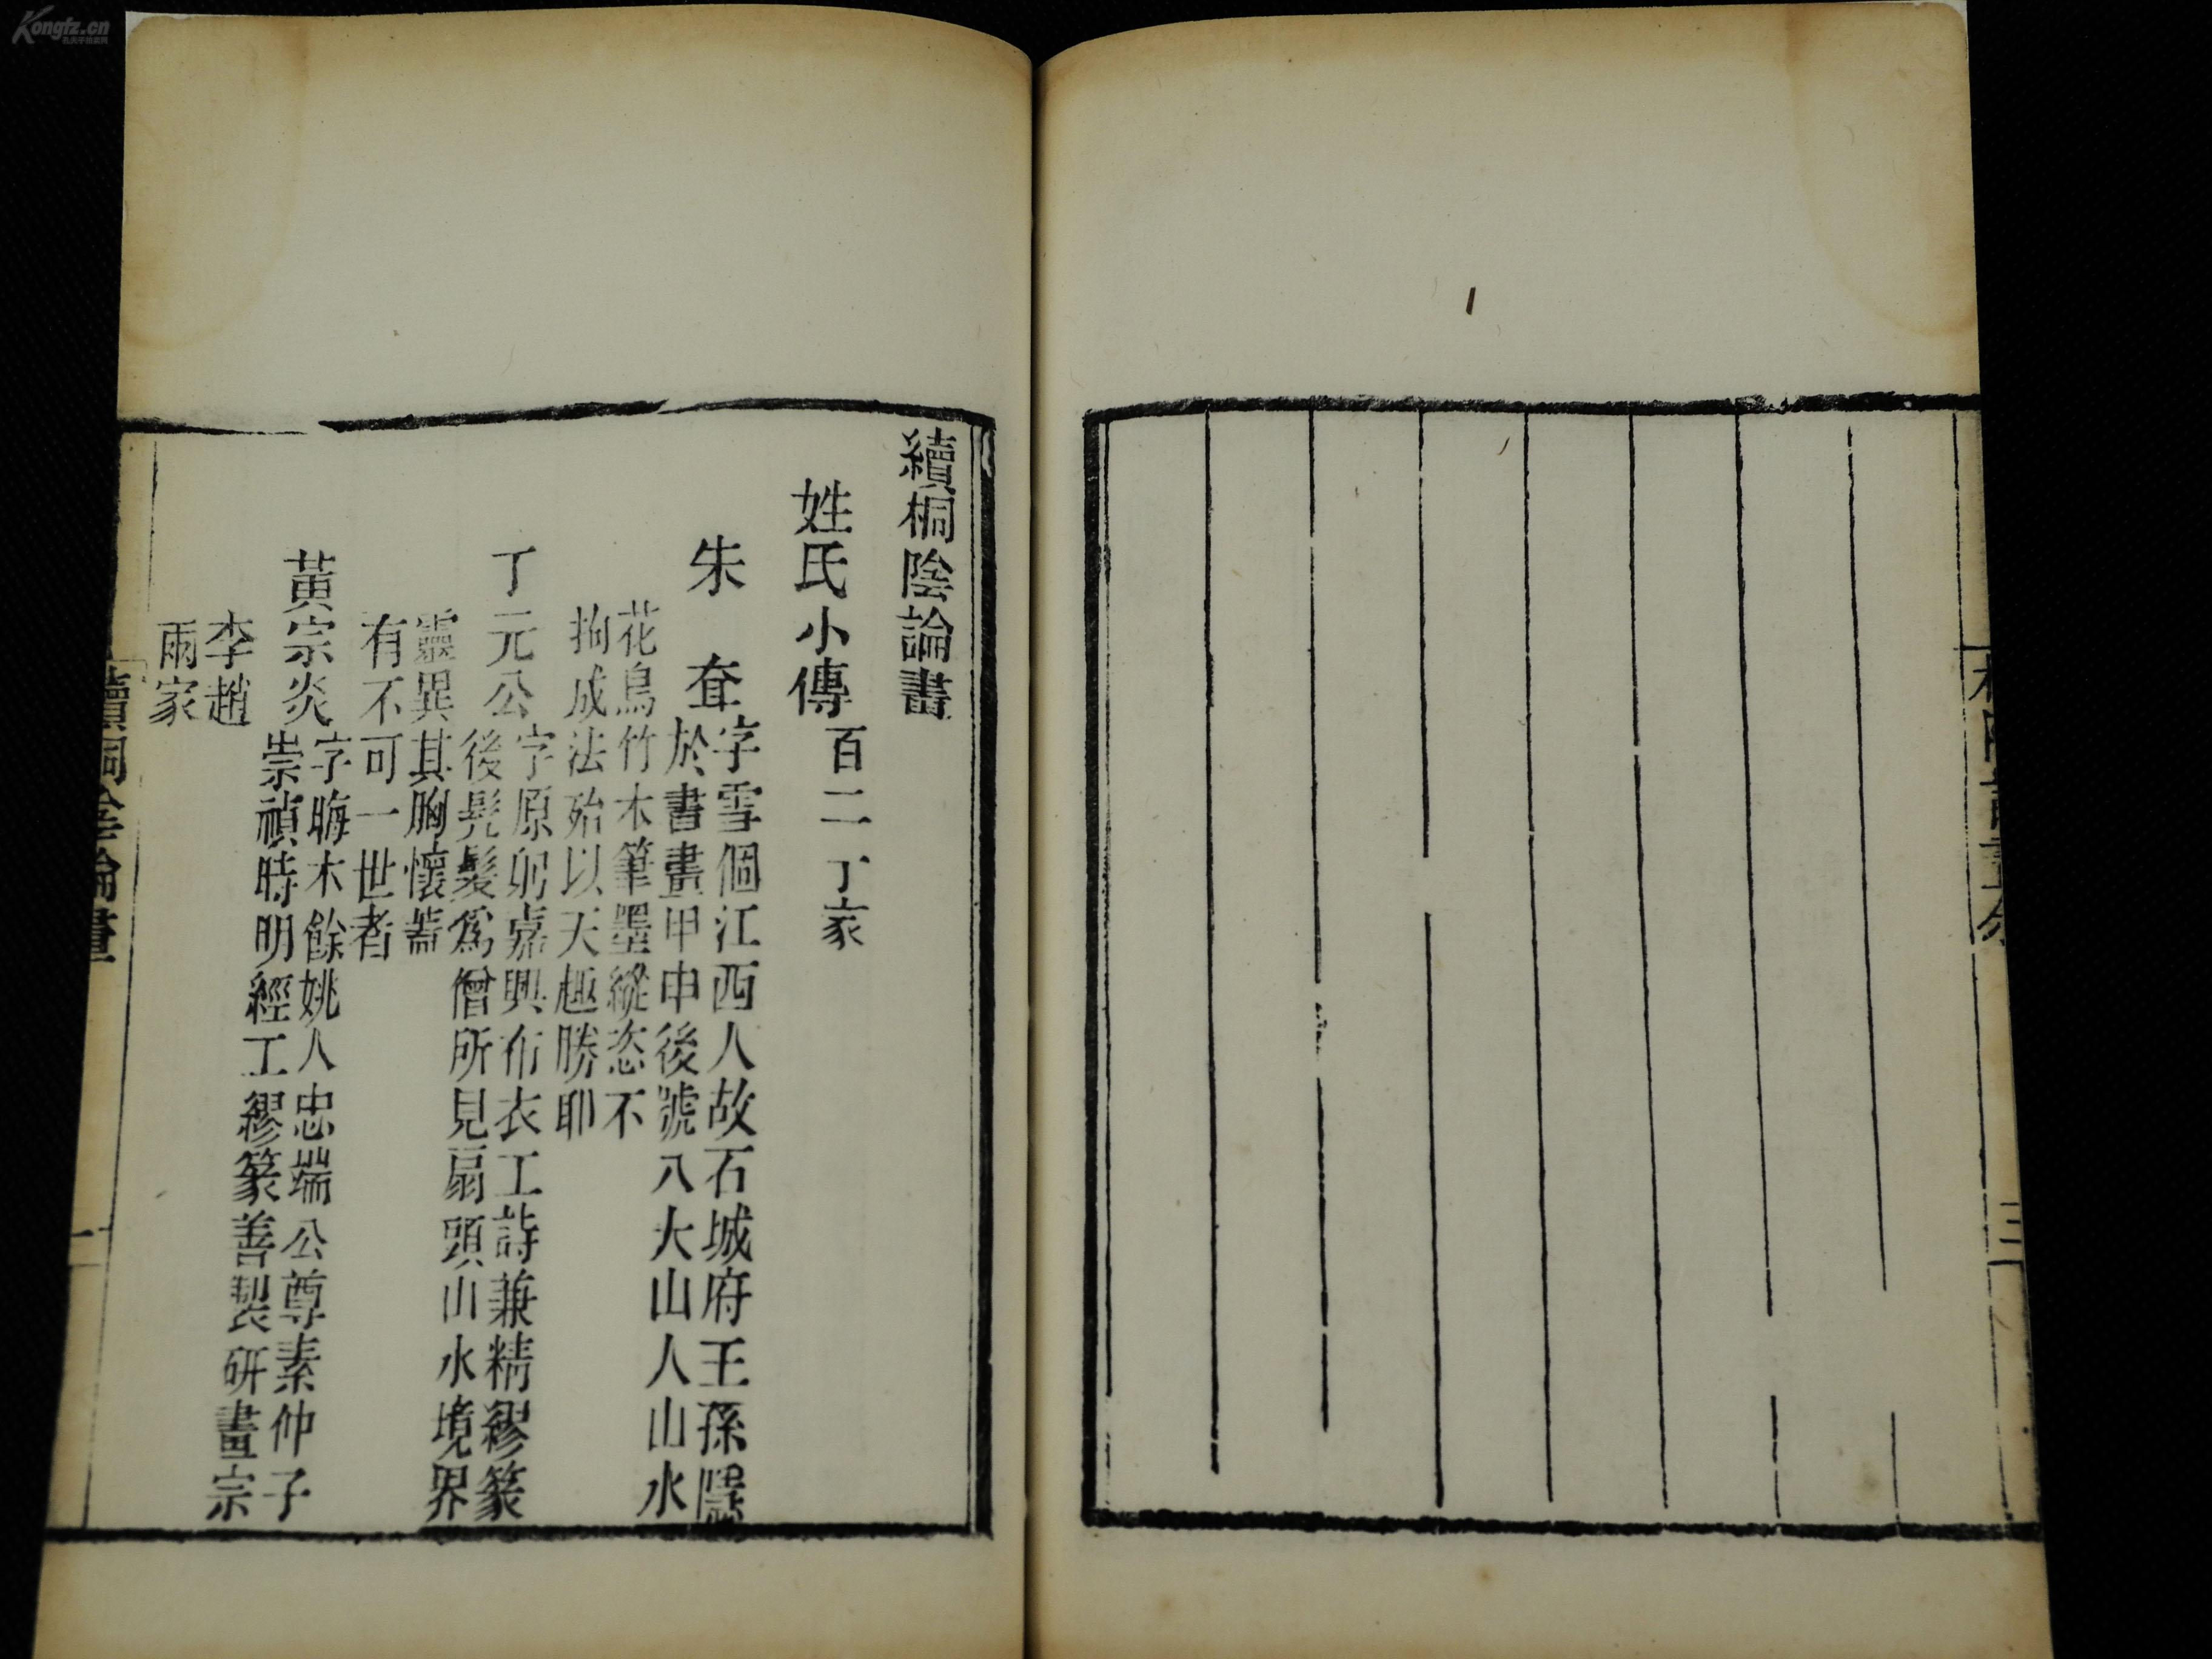 續桐陰論畫
姓氏小傳
百二十家
朱耷
字雪個江西人故石城府王孫隱
於書畫甲申後號八大山人山水
花鳥竹木筆墨縱恣不
拘成法殆以天趣勝耶
丁元公
字原躬嘉興布衣工詩兼精繆篆
後髡髮爲僧所見扇頭山水境界
靈異其胸懷蓋
有不可一世者
黃宗炎
字晦木餘姚人忠端公尊素仲子
崇禎時明經工繆篆善製硏畫宗
李趙
兩家
續桐陰論畫
一
三
Kongfz.cn